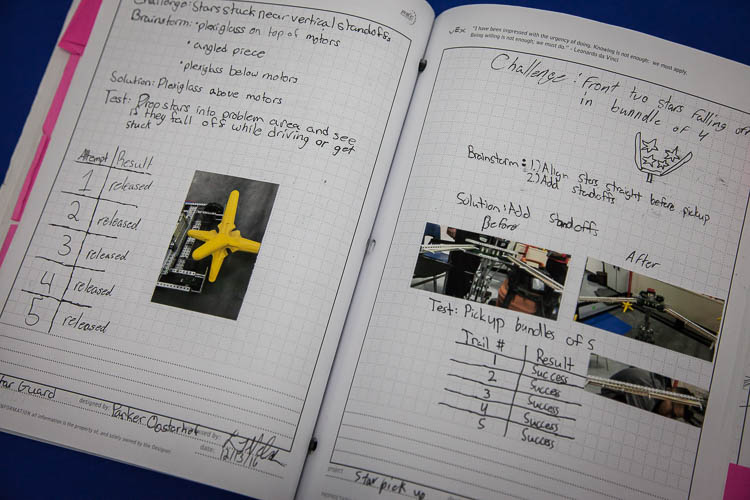 Challenge: Stars stuck near vertical standoffs
Brainstorm: • plexiglass on top of motors
• angled piece
• plexiglass below motors
Solution: Plexiglass above motors
Test: Drop stars into problem area and see
is they fall off while driving or get
stuck
Attempt Result
1 released
2 released
3 released
4 released
5 released
Star Guard
designed by: Parker
date: 12/13/16
INFORMATION all information is the property of, and solely owned by the designer.
VEX
"I have been impressed with the urgency of doing. Knowing is not enough; we must apply.
Being willing is not enough; we must do." - Leonardo da Vinci
Challenge: Front two stars falling off
in bunndle of 4
Brainstorm: 1.) Align stars straight before pickup
2.) Add standoffs
Solution: Add standoffs
Before
After
Test: Pickup bundles of 5
Trail # Result
1 Success
2 Success
3 Success
4 Success
5 Success
project
Star pick up